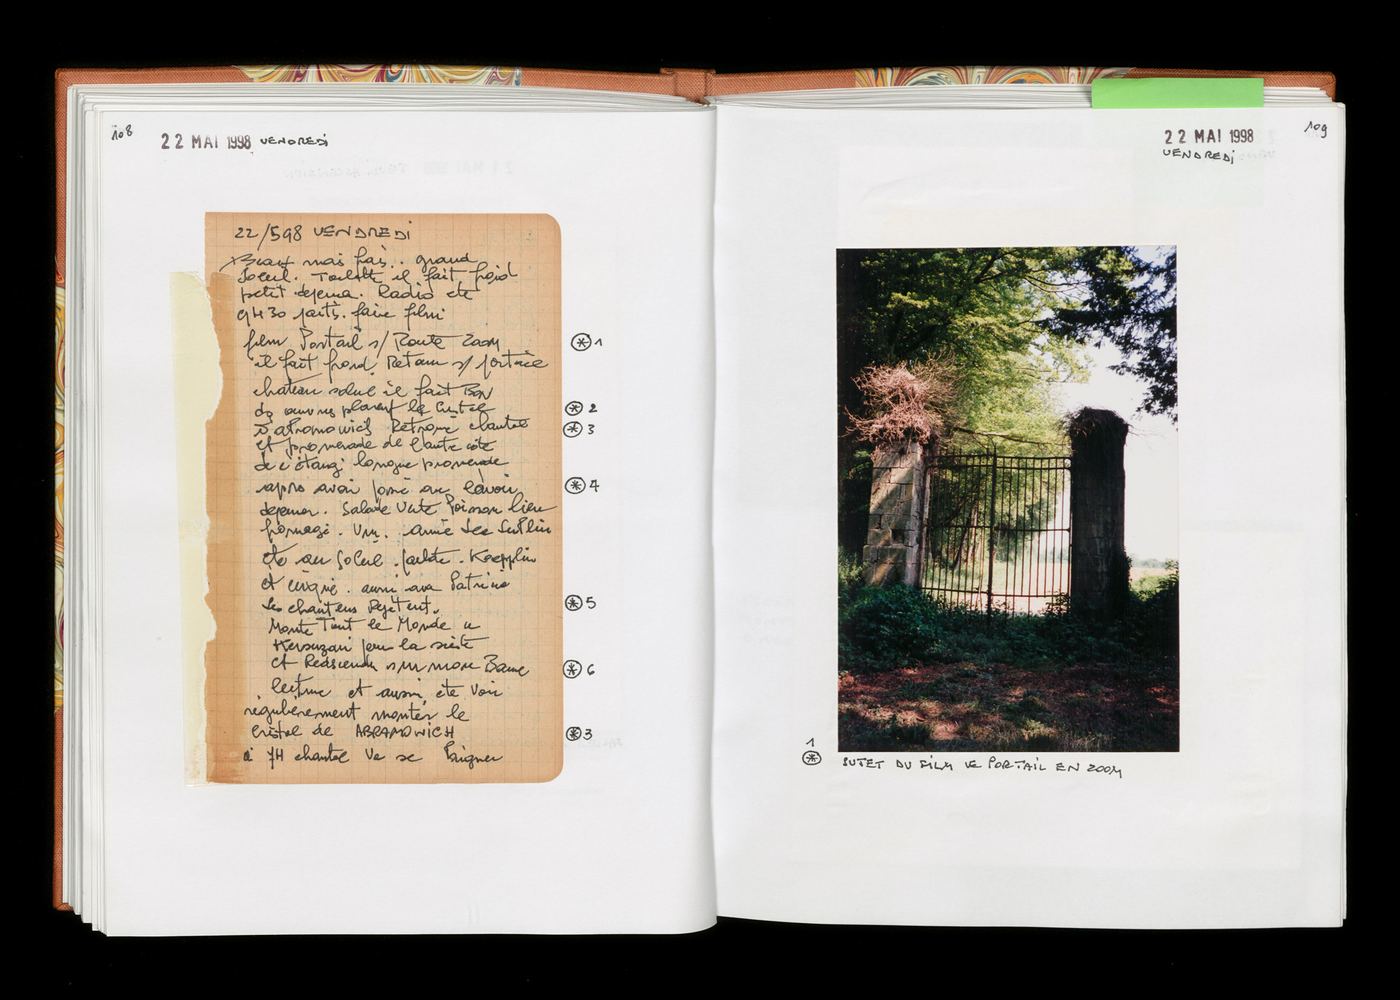 108
22 MAI 1998 VENDREDI
22/598 VENDREDI
Beau mais frais.. grand
Soleil. Toilette il fait froid
petit dejeuna. Radio etc
9H30 parts. faire film
film Portail s/ Route zoom
il fait froid. Retour s/
chateau soleil il fait Bon
le Cristal
D'abramowich Retrouve chantal
et promenade de l'autre côté
de l'étang longue promenade
après avoir lavoir
dejeuner. Salade Verte Poisson lieu
fromage. Vin.
été au Soleil. Koepplin
et cirque. aussi avec Patricia
les chanteurs Repètent.
Monte Tout le Monde a
Kerguzan pour la sieste
et Redscends
lecture et aussi été Voir
regulierement monter le
Cristal de ABRAMOWICH
à 7H chantal Va se Baigner
*1
*2
*3
*4
*5
*6
*3
109
22 MAI 1998
VENDREDI
1
* SUJET DU FILM LE PORTAIL EN ZOOM